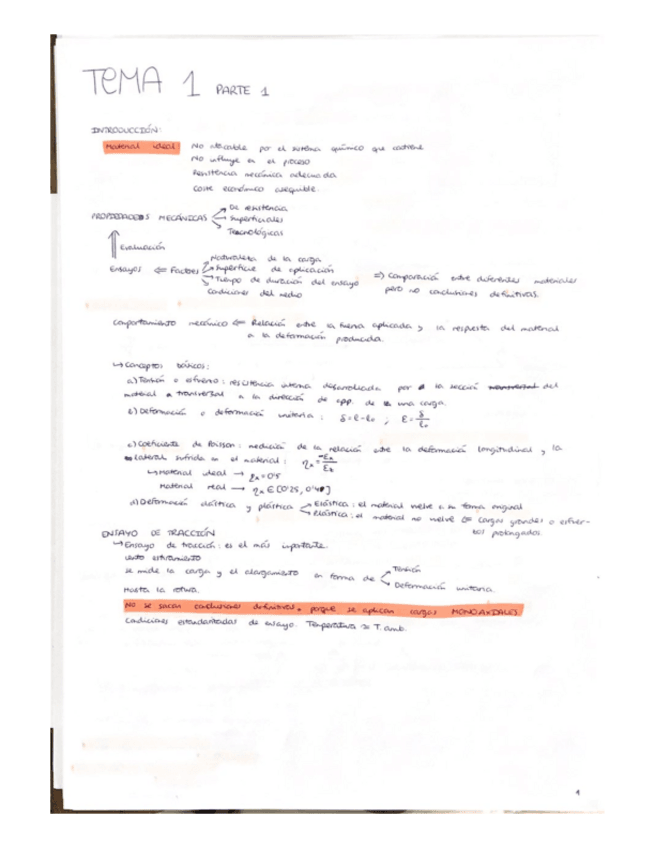 TEMA 1 PARTE 1
INTRODUCCIÓN:
Material ideal No atacable por el sistema químico que contiene
No influye en el proceso
Resistencia mecánica adecuada
Coste económico asequible.
PROPIEDADES MECÁNICAS De resistencia
Superficiales
Tecnológicas
Evaluación
Ensayos ⇐ Factores Naturaleza de la carga
Superficie de aplicación
Tiempo de duración del ensayo
Condiciones del medio
⇒ Comparación entre diferentes materiales
pero no conclusiones definitivas.
Comportamiento mecánico ⇐ Relación entre la fuerza aplicada y la respuesta del material
a la deformación producida.
↳ Conceptos básicos:
a) Tensión o esfuerzo: resistencia interna desarrollada por la sección transversal del
material transversal a la dirección de app. de una carga.
b) Deformación o deformación unitaria: δ=l-l₀ ; ε=δ/l₀
c) Coeficiente de Poisson: medición de la relación entre la deformación longitudinal y la
lateral sufrida en el material:
↳ Material ideal → =0'5
Material real → ∈ [0'25,
d) Deformación elástica y plástica Elástica: el material vuelve a su forma original
Plástica: el material no vuelve ⇐ cargas grandes o esfuer-
zos prolongados.
ENSAYO DE TRACCIÓN
↳ Ensayo de tracción: es el más importante.
Lento estiramiento
Se mide la carga y el alargamiento en forma de Tensión
Deformación unitaria.
Hasta la rotura.
No se sacan conclusiones definitivas, porque se aplican cargas MONOAXIALES.
Condiciones estandarizadas de ensayo. Temperatura ≈ T. amb.
1